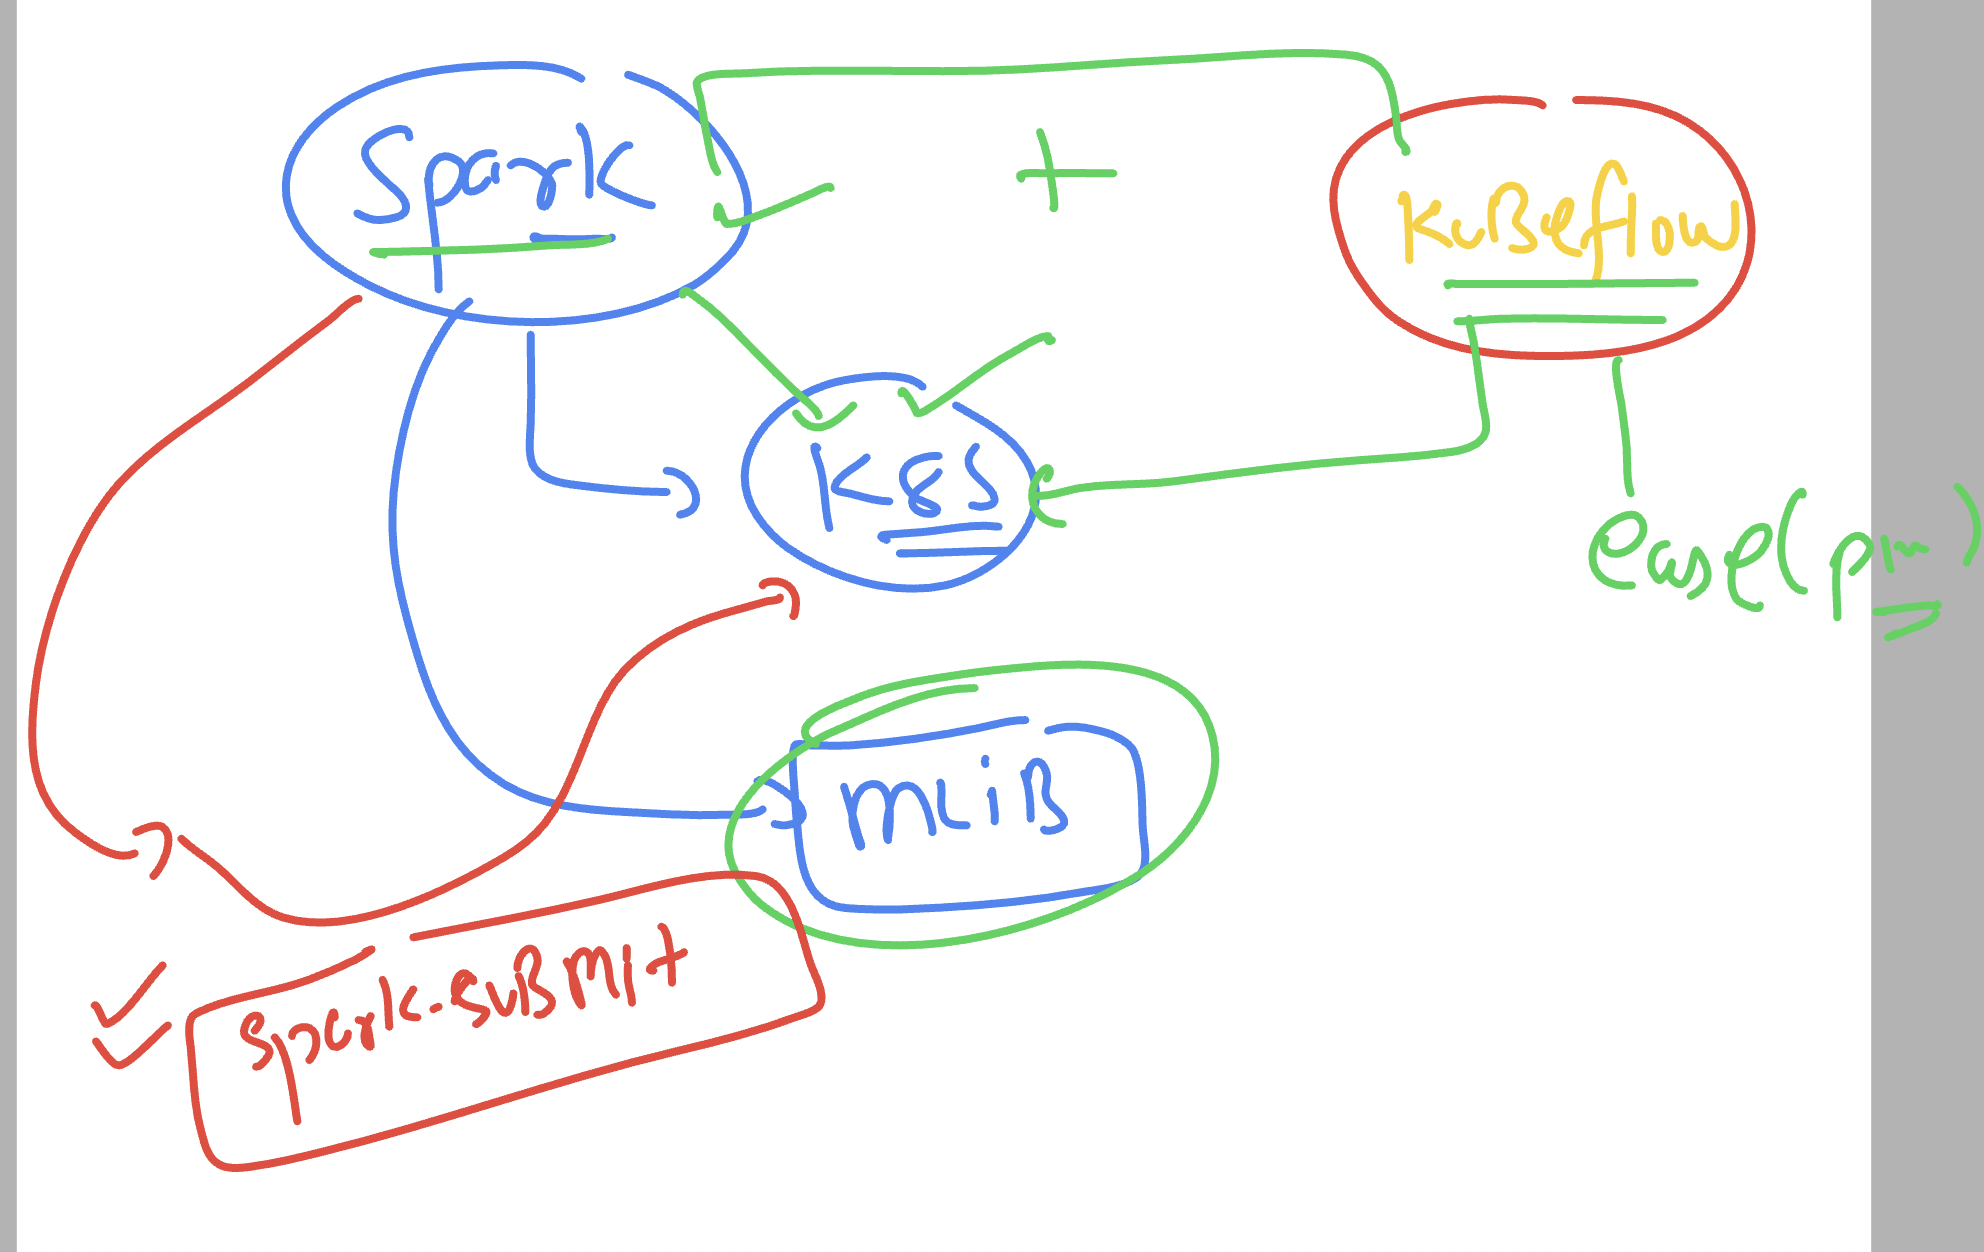 Spark
+
KuBeflow
K8S
ease(
MLiB
Spark-SuBMit